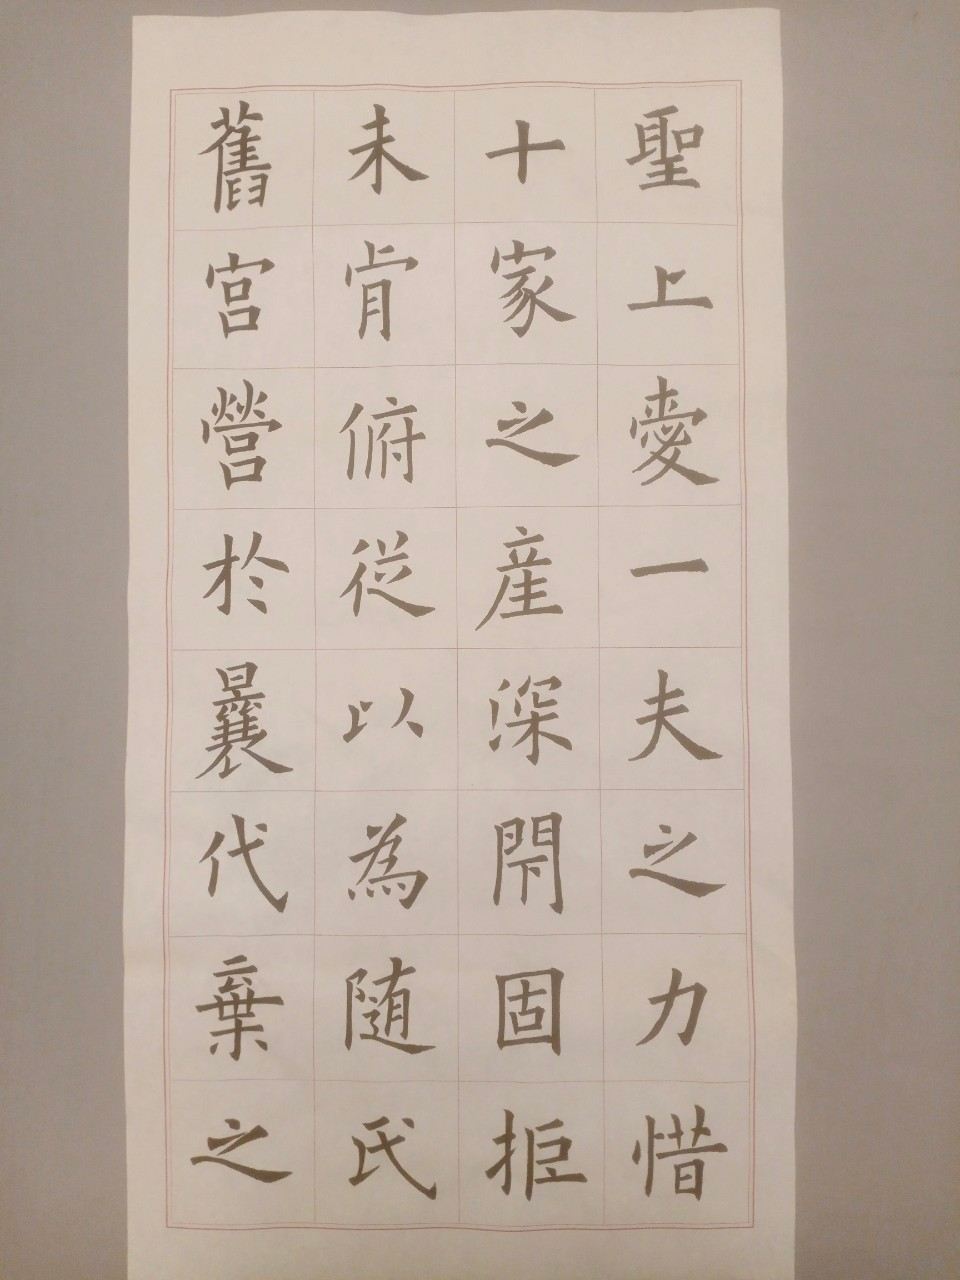 聖上愛一夫之力惜
十家之産深閇固拒
未肯俯從以為随氏
舊宫營於曩代棄之